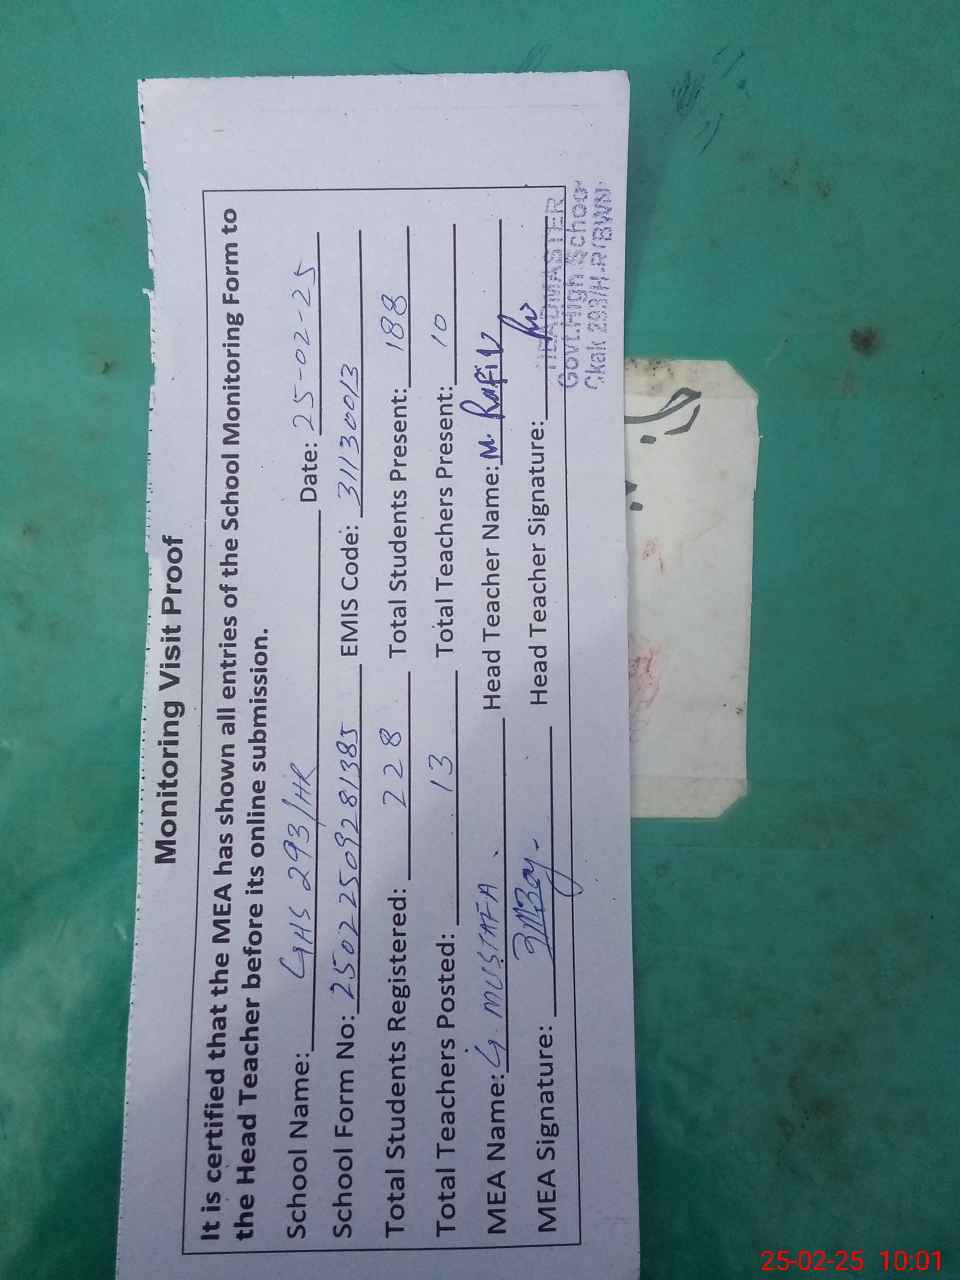 Monitoring Visit Proof
It is certified that the MEA has shown all entries of the School Monitoring Form to
the Head Teacher before its online submission.
School Name: GHS 293/HR Date: 25-02-25
School Form No: 2502250928138 5 EMIS Code: 31130013
Total Students Registered: 228 Total Students Present: 188
Total Teachers Posted: 13 Total Teachers Present: 10
MEA Name: G. MUSTAFA Head Teacher Name: M. Rafiq
MEA Signature: Head Teacher Signature:
HEADMASTER
Govt. High School
Chak 293/H-R (BWN)
25-02-25 10:01